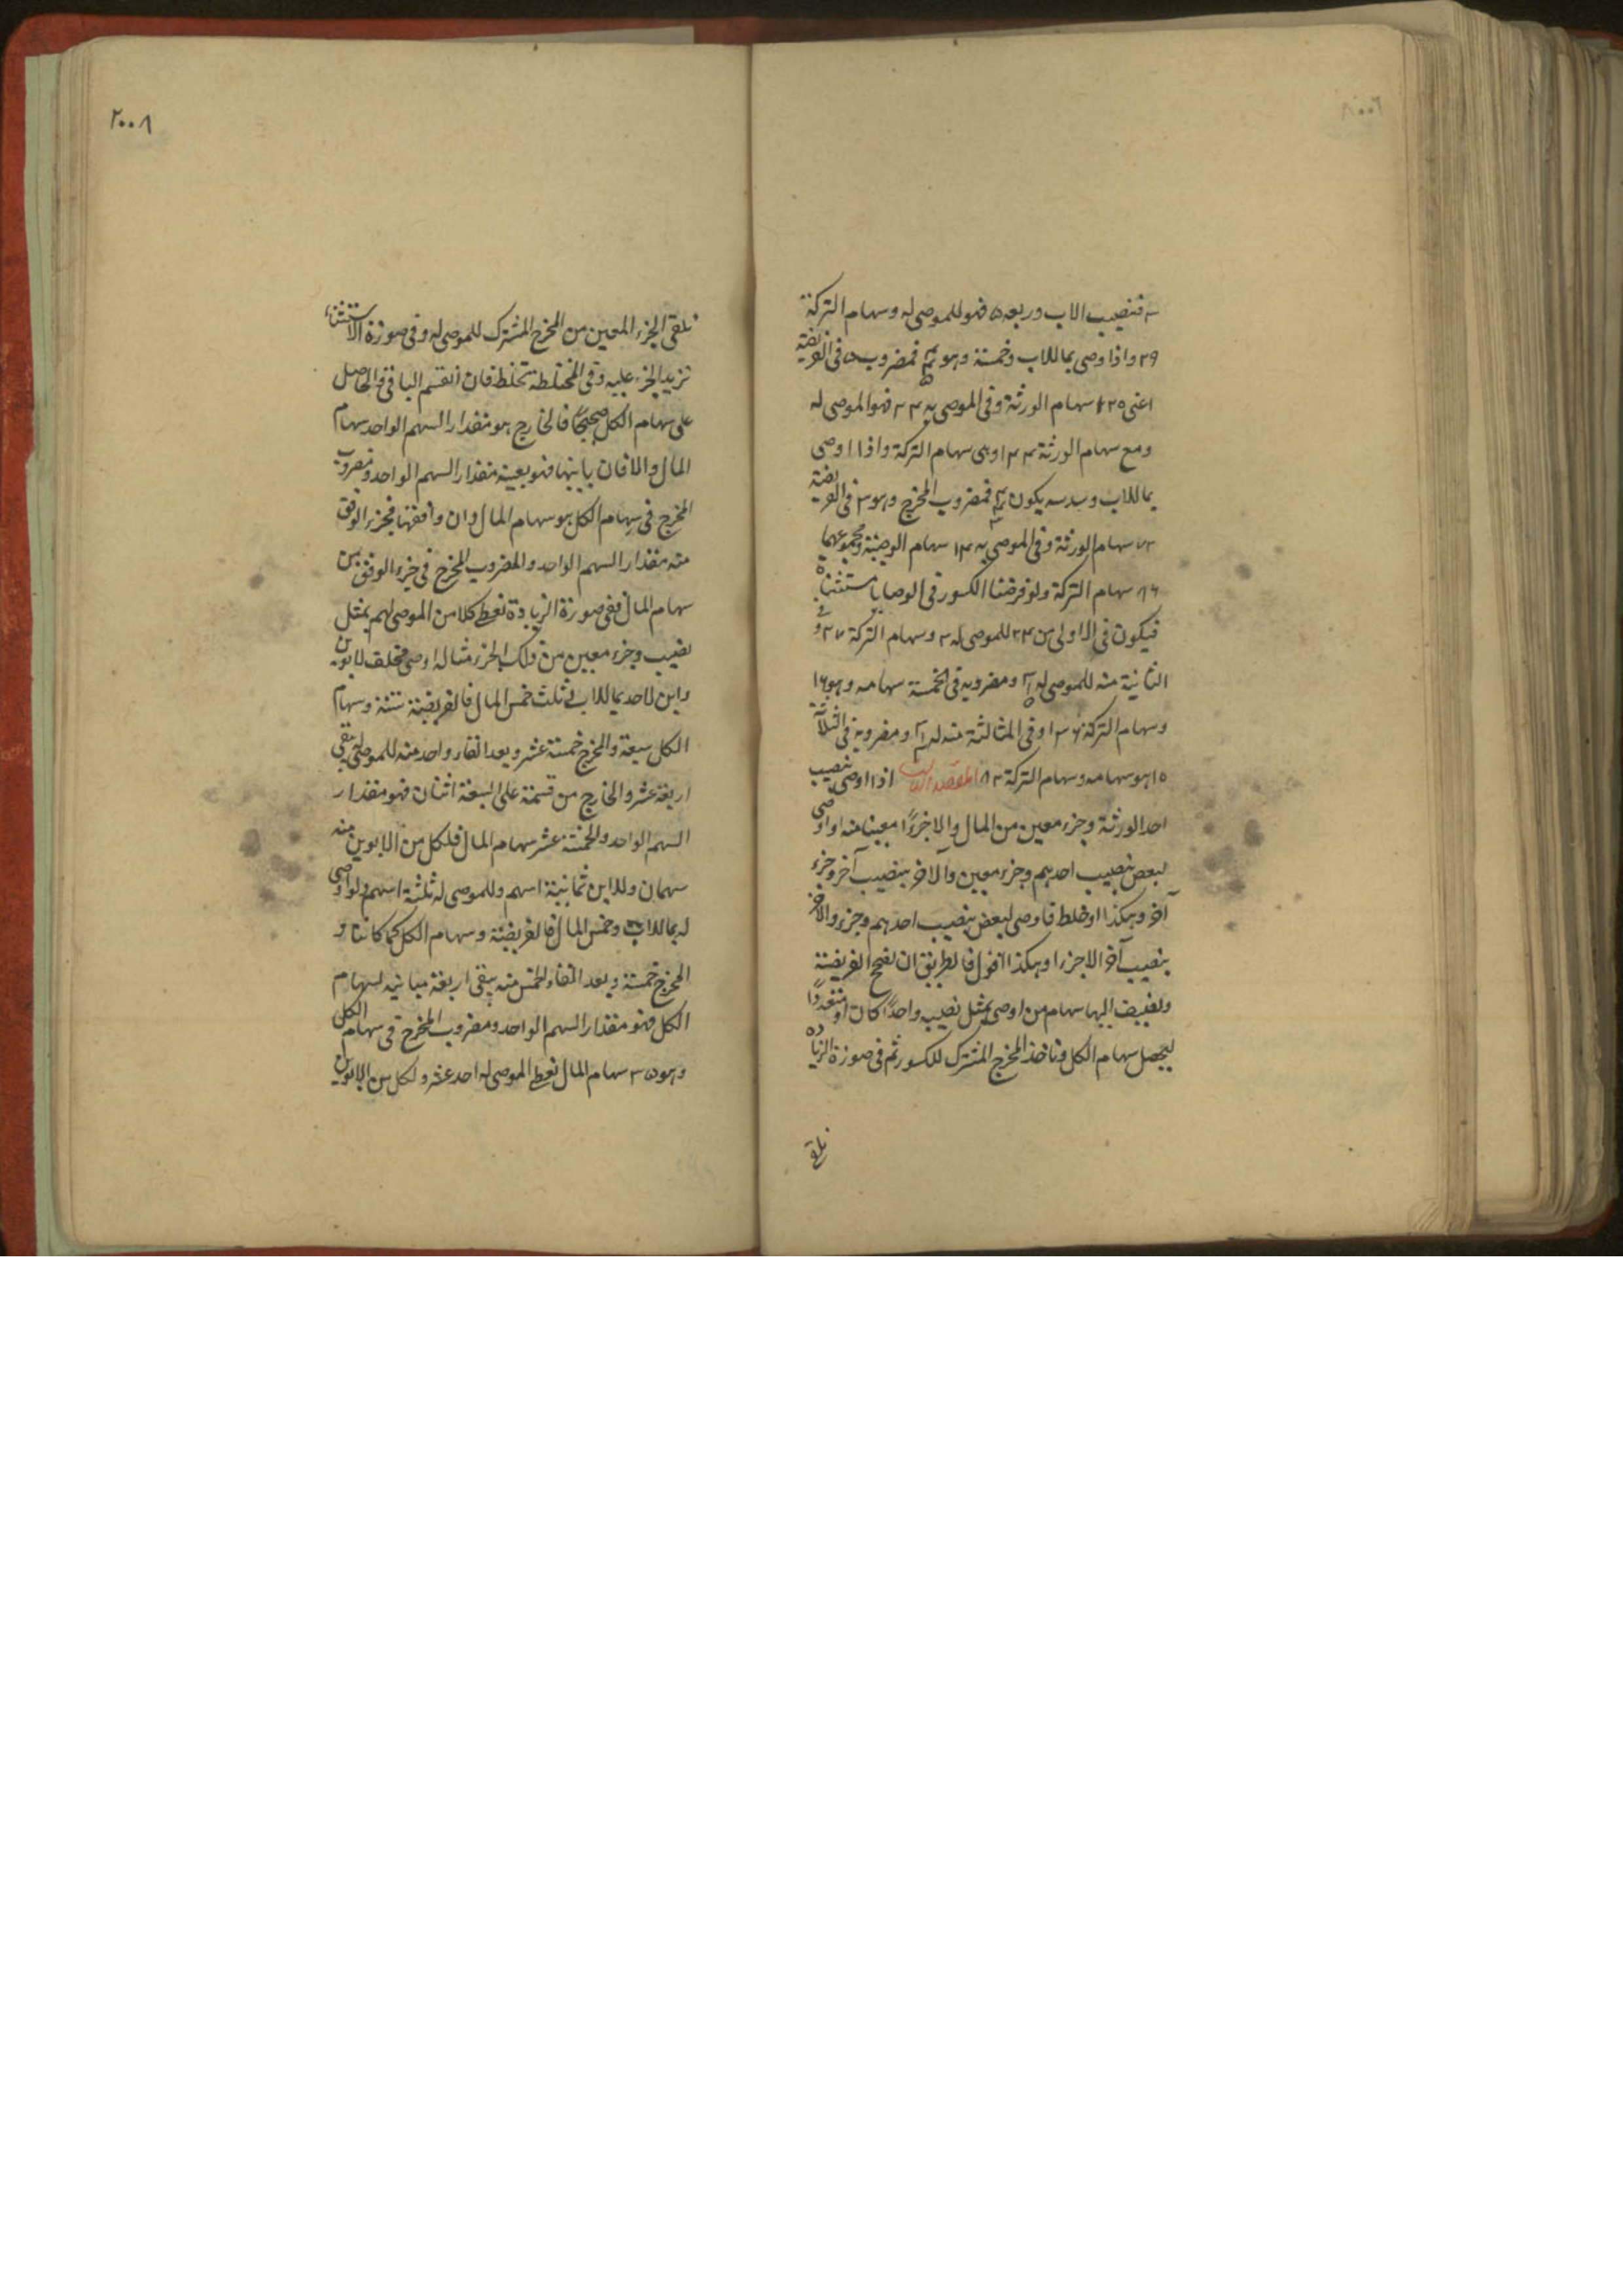 فنصيب الاب وربعه ۵ فهو للموصى له وسهام التركة
۲۹ واذا اوصى بما للاب وخمسة وهو فمضروب ۵ فى الفريضة
اعنى سهام الورثة وفى الموصى به ۲۴ فهو الموصى له
ومع سهام الورثة ۱۴۴ وهى سهام التركة واذا اوصى
بما للاب وسدسه يكون فمضروب المخرج وهو ۳ فى الفريضة
۷۲ سهام الورثة وفى الموصى به ۱۴ سهام الوصية ومجموعهما
۸۶ سهام التركة ولو فرضنا الكسور فى الوصايا مستثناة
فيكون فى الاولى من ۲۴ للموصى له ۳ وسهام التركة ۲۷ وفى
الثانية منه للموصى له ومضروبه فى الخمسة سهامه وهو ۱۶
وسهام التركة ۱۳۶ وفى الثالثة منه له ومضروبه فى الثلاثة
۱۰ هو سهامه وسهام التركة ۸۲ المقصد اذا اوصى بنصيب
احد الورثة وجزء معين من المال والا جزءًا معينا منه او اوصى
لبعض بنصيب احدهم وجزء معين والآخر بنصيب آخر وجزء
آخر وهكذا او خلط فاوصى لبعض بنصيب احدهم وجزء والآخر
بنصيب آخر الا جزءا وهكذا اقول فالطريق ان تصحح الفريضة
وتضيف اليها سهام من اوصى بمثل نصيبه واحدًا كان او متعددًا
ليحصل سهام الكل وتاخذ المخرج المشترك للكسور ثم فى صورة الزيادة
نلقى
نلقى الجزء المعين من المخرج المشترك للموصى له وفى صورة الاستثناء
نزيد الجزء عليه وفى المختلطة نخلط فان انقسم الباقى والحاصل
على سهام الكل صحيحًا فالخارج هو مقدار السهم الواحد سهام
المال والا فان باينها فهو بعينه مقدار السهم الواحد ومضروب
المخرج فى سهام الكل هو سهام المال وان وافقها فجزء الوفق
منه مقدار السهم الواحد والمضروب المخرج فى جزء الوفق من
سهام المال ففى صورة الزيادة نعط كلا من الموصى لهم بمثل
نصيب وجزء معين من ذلك الجزء مثاله اوصى مخلف لابوين
وابن لاحد بما للاب وثلث خمس المال فالفريضة ستة وسهام
الكل سبعة والمخرج خمسة عشر وبعد القاء واحد منه للموصى له يبقى
اربعة عشر والخارج من قسمة على السبعة اثنان فهو مقدار
السهم الواحد والخمسة عشر سهام المال فلكل من الابوين منه
سهمان وللابن ثمانية اسهم وللموصى له ثلثة اسهم ولو اوصى
له بما للاب وخمس المال فالفريضة وسهام الكل كما كانتا و
المخرج خمسة وبعد القاء الخمس منه يبقى اربعة مباينه لسهام
الكل فهو مقدار السهم الواحد ومضروب المخرج فى سهام الكل
وهو ۳۵ سهام المال نعط الموصى له احد عشر ولكل من الابوين
۲۰۰۸